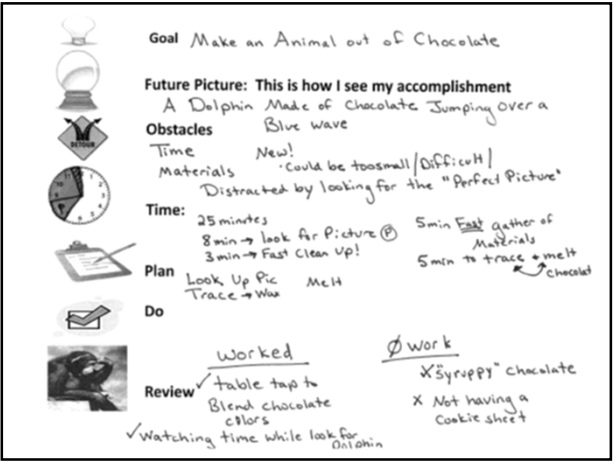 Goal Make an Animal out of Chocolate
Future Picture: This is how I see my accomplishment
A Dolphin Made of Chocolate Jumping Over a
Blue wave
Obstacles
DETOUR
Time New!
Materials · Could be too small/Difficult/
Distracted by looking for the "Perfect Picture"
Time:
25 minutes
8 min → look for Picture P
3 min → Fast Clean Up!
5 min Fast gather of
Materials
5 min to trace + melt
chocolat
Plan
Look Up Pic Melt
Trace → Wax
Do
Review
Worked
✓ table tap to
Blend chocolate
colors
✓ Watching time while look for
Dolphin
Ø work
X "Syruppy" chocolate
X Not having a
Cookie sheet